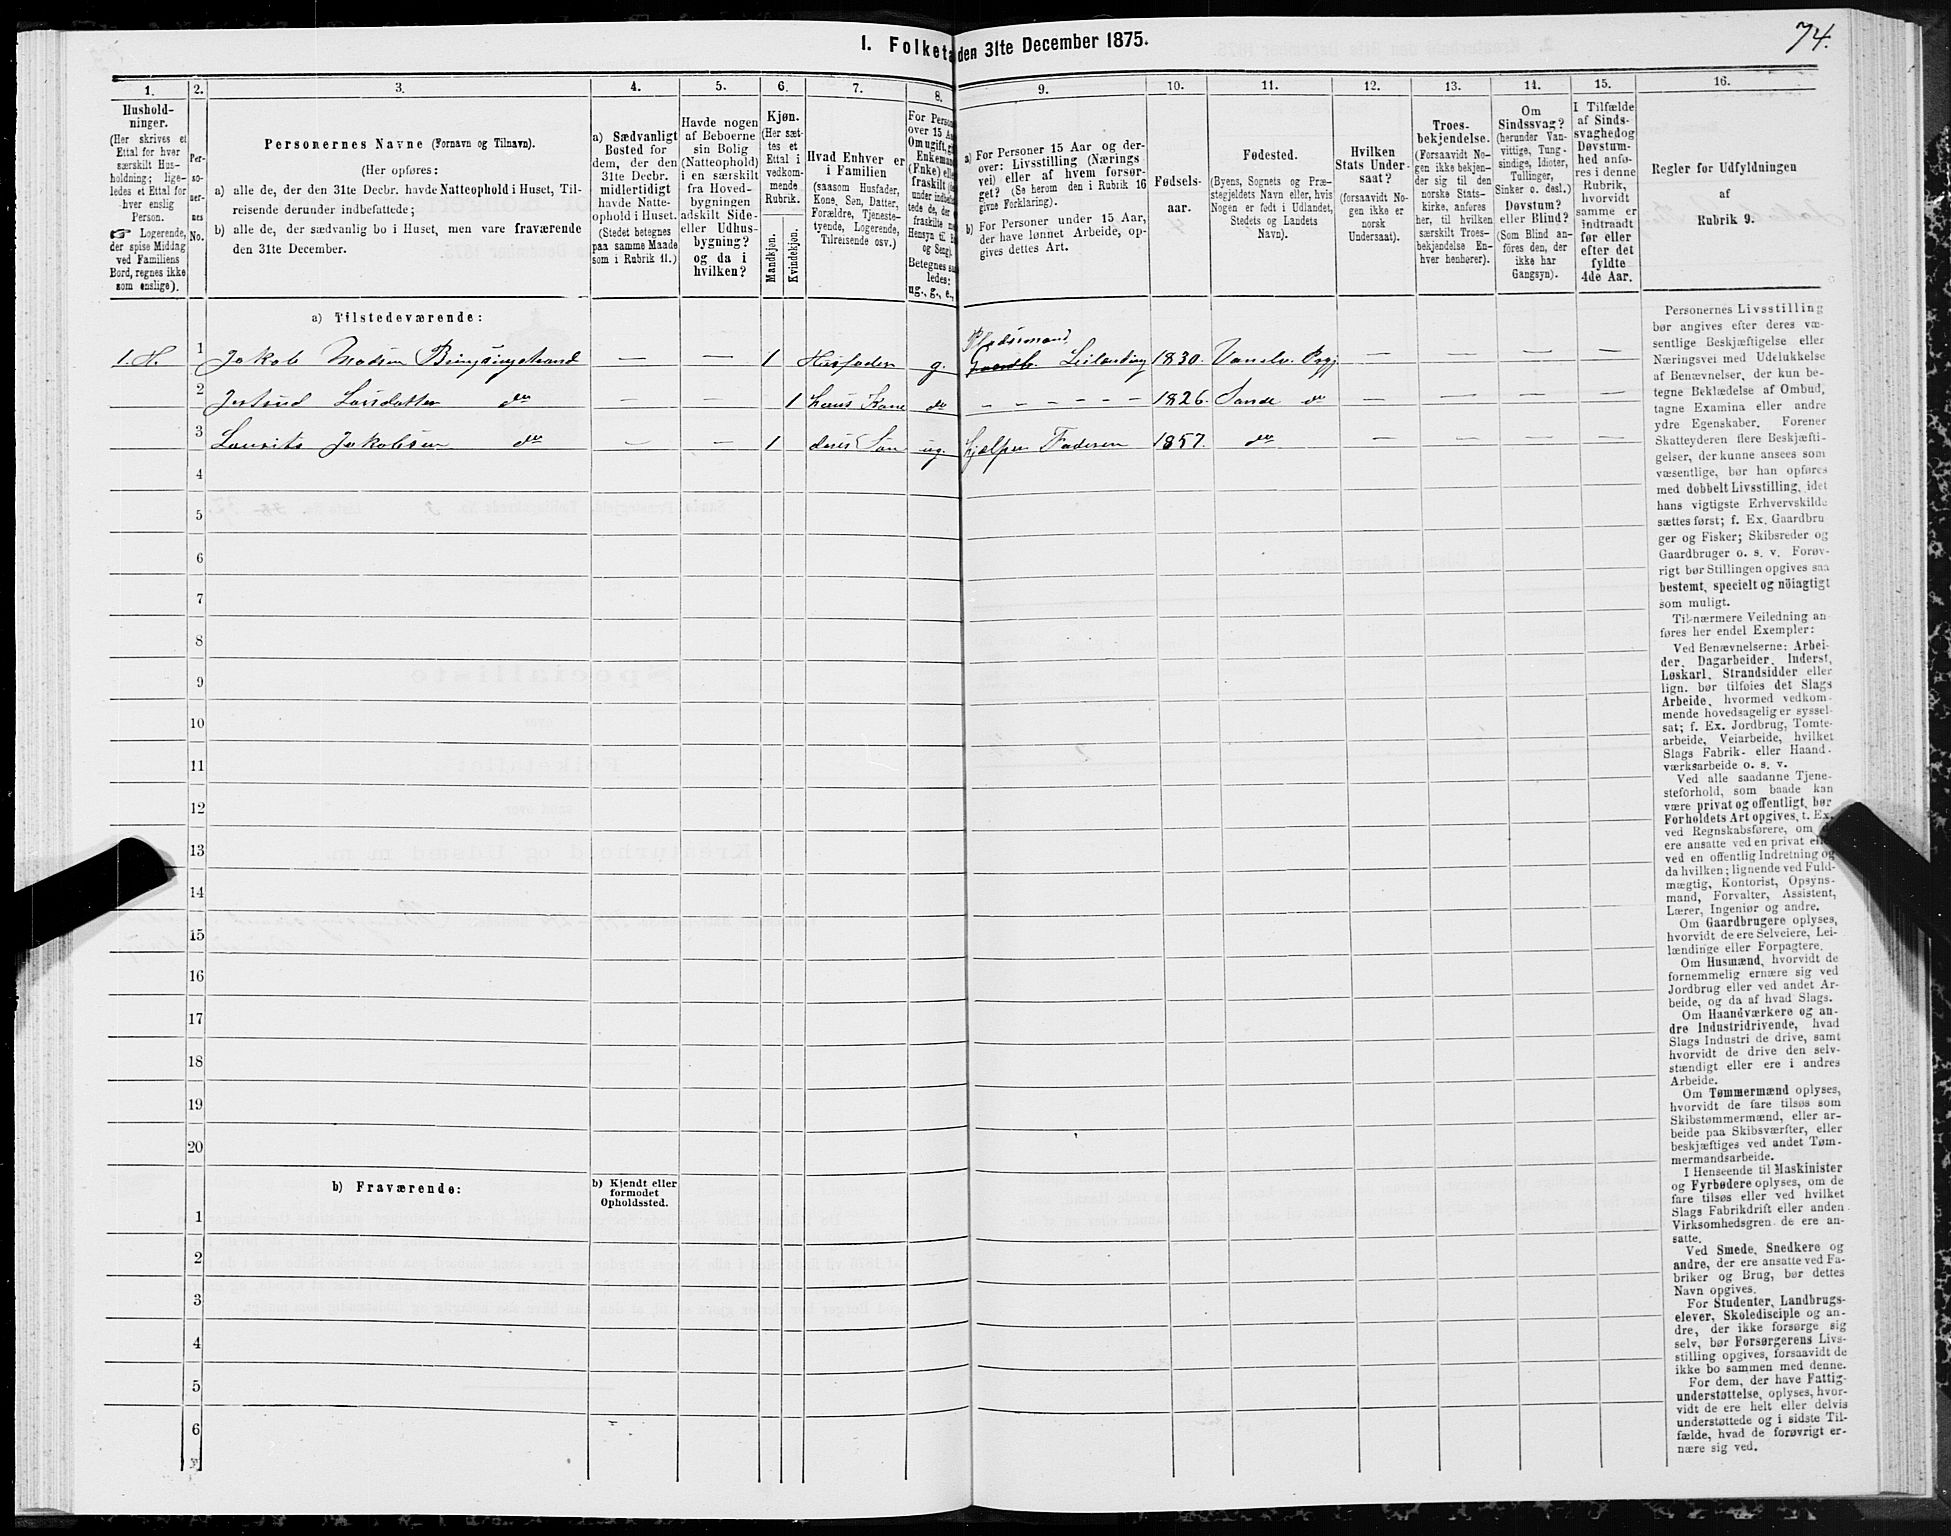 74.
I. Folketa den 31te December 1875.
1.
Hushold-
ninger.
(Her skrives et
Ettal for hver
særskilt Hus-
holdning; lige-
ledes et Ettal for
hver enslig
Person.
☞ Logerende,
der spise Middag
ved Familiens
Bord, regnes ikke
som enslige).
2.
Per-
so-
ner-
nes
No.
3.
Personernes Navne (Fornavn og Tilnavn).
(Her opføres:
a) alle de, der den 31te Decbr. havde Natteophold i Huset, Til-
reisende derunder indbefattede;
b) alle de, der sædvanlig bo i Huset, men vare fraværende
den 31te December.
4.
a) Sædvanligt
Bosted for
dem, der den
31te Decbr.
midlertidigt
havde Natte-
ophold i Huset.
(Stedet betegnes
paa samme Maade
som i Rubrik 11.)
5.
Havde nogen
af Beboerne
sin Bolig
(Natteophold)
i en særskilt
fra Hoved-
bygningen
adskilt Side-
eller Udhus-
bygning?
og da i
hvilken?
6.
Kjøn.
(Her sæt-
tes et
Ettal i
vedkom-
mende
Rubrik.
Mandkjøn.
Kvindekjøn.
7.
Hvad Enhver er
i Familien
(saasom Husfader,
Kone, Søn, Datter,
Forældre, Tjeneste-
tyende, Logerende,
Tilreisende osv.)
8.
For Person
over 15 Aa
Om ugift, gi
Enkeman
(Enke) elle
fraskilt
under indbefat-
tede de, der
fraskilte m
Hensyn til B
og Seng).
Betegnes saa
ledes:
ug., g., e.,
9.
a) For Personer 15 Aar og der-
over: Livsstilling (Nærings
vei) eller af hvem forsør-
get? (Se herom den i Rubrik 16
givne Forklaring).
b) For Personer under 15 Aar,
der have lønnet Arbeide, op-
gives dettes Art.
10.
Fødsels-
aar.
11.
Fødested.
(Byens, Sognets og Præ-
stegjeldets Navn eller, hvis
Nogen er født i Udlandet,
Stedets og Landets
Navn).
12.
Hvilken
Stats Under-
saat?
(forsaavidt No-
gen ikke er
norsk
Undersaat).
13.
Troes-
bekjendelse.
(Forsaavidt No-
gen ikke bekjen-
der sig til den
norske Stats-
kirke, anføres
her, til hvilken
særskilt Troes-
bekjendelse En-
hver henhører).
14.
Om
Sindssvag?
(herunder Van-
vittige, Tung-
sindige, Idioter,
Tullinger,
Sinker o. desl.)
Døvstum?
eller Blind?
(Som Blind an-
føres den, der
ikke har
Gangsyn).
15.
I Tilfælde
af Sinds-
svaghed og
Døvstum-
hed anfø-
res i denne
Rubrik,
hvorvidt
samme er
indtraadt
før eller
efter det
fyldte
4de Aar.
16.
Regler for Udfyldningen
af
Rubrik 9.
a) Tilstedeværende:
Pladsmand
1. H. 1 Jakob Madsen — — 1 Husfader g. Leilænding 1830. Vanelv. Pgj — — — —
2 Jertrud Larsdatter do — — 1 hans Kone do - - - - - - 1826. Sande do — — — —
3 Laurits Jakobsen do — — 1 deres Søn ug. hjælper Faderen 1857. do — — — —
4
5
6
7
8
9
10
11
12
13
14
15
16
17
18
19
20
b) Fraværende:
b) Kjendt eller
formodet
Opholdssted.
1
2
3
4
5
6
Personernes Livsstilling
bør angives efter deres væ-
sentlige Beskjæftigelse eller
Næringsvei med Udelukkelse
af Benævnelser, der kun be-
tegne Beklædelse af Ombud,
tagne Examina eller andre
ydre Egenskaber. Forener
Skatteyderen flere Beskjæfti-
gelser, der kunne ansees som
væsentlige, bør han opføres
med dobbelt Livsstilling, idet
hans vigtigste Erhvervskilde
sættes først; f. Ex. Gaardbru
ger og Fisker; Skibsreder og
Gaardbruger o. s. v. Forøv-
rigt bør Stillingen opgives saa
bestemt, specielt og nöiagtigt
som muligt.
Til nærmere Veiledning an-
føres her endel Exempler:
Ved Benævnelserne: Arbei-
der, Dagarbeider, Inderst,
Løskarl, Strandsidder eller
lign. bør tilføies det Slags
Arbeide, hvormed vedkom-
mende hovedsagelig er syssel-
sat; f. Ex. Jordbrug, Tomte-
arbeide, Veiarbeide, hvilket
Slags Fabrik- eller Haand-
værksarbeide o. s. v.
Ved alle saadanne Tjene-
steforhold, som baade kan
være privat og offentligt, bør
Forholdets Art opgives, t. Ex.
ved Regnskabsførere, om
ere ansatte ved en privat eller
ved en offentlig Indretning og
da hvilken; lignende ved Fuld-
mægtig, Kontorist, Opsyns-
mand, Forvalter, Assistent,
Lærer, Ingeniør og andre.
Om Gaardbrugere oplyses,
hvorvidt de ere Selveiere, Lei-
lændinge eller Forpagtere.
Om Husmænd, hvorvidt de
fornemmelig ernære sig ved
Jordbrug eller ved andet Ar-
beide, og da af hvad Slags.
Om Haandværkere og an-
dre Industridrivende, hvad
Slags Industri de drive, samt
hvorvidt de drive den selv-
stændigt eller ere i andres
Arbeide.
Om Tømmermænd oplyses,
hvorvidt de fare tilsøs som
Skibstømmermænd, eller ar-
beide paa Skibsværfter, eller
beskjæftiges ved andet Tøm-
mermandsarbeide.
I Henseende til Maskinister
og Fyrbødere oplyses, om de
fare tilsøs eller ved hvilket
Slags Fabrikdrift eller anden
Virksomhedsgren de ere an-
satte.
Ved Smede, Snedkere og
andre, der ere ansatte ved Fa-
briker og Brug, bør dettes
Navn opgives.
For Studenter, Landbrugs-
elever, Skoledisciple og an-
dre, der ikke forsørge sig
selv, bør Forsørgerens Livs-
stilling opgives, forsaavidt de
ikke bo sammen med denne.
For dem, der have Fattig-
understøttelse, oplyses, hvor-
vidt de ere helt eller delvis
understøttede og i sidste Til-
fælde, hvad de forøvrigt er-
nære sig ved.